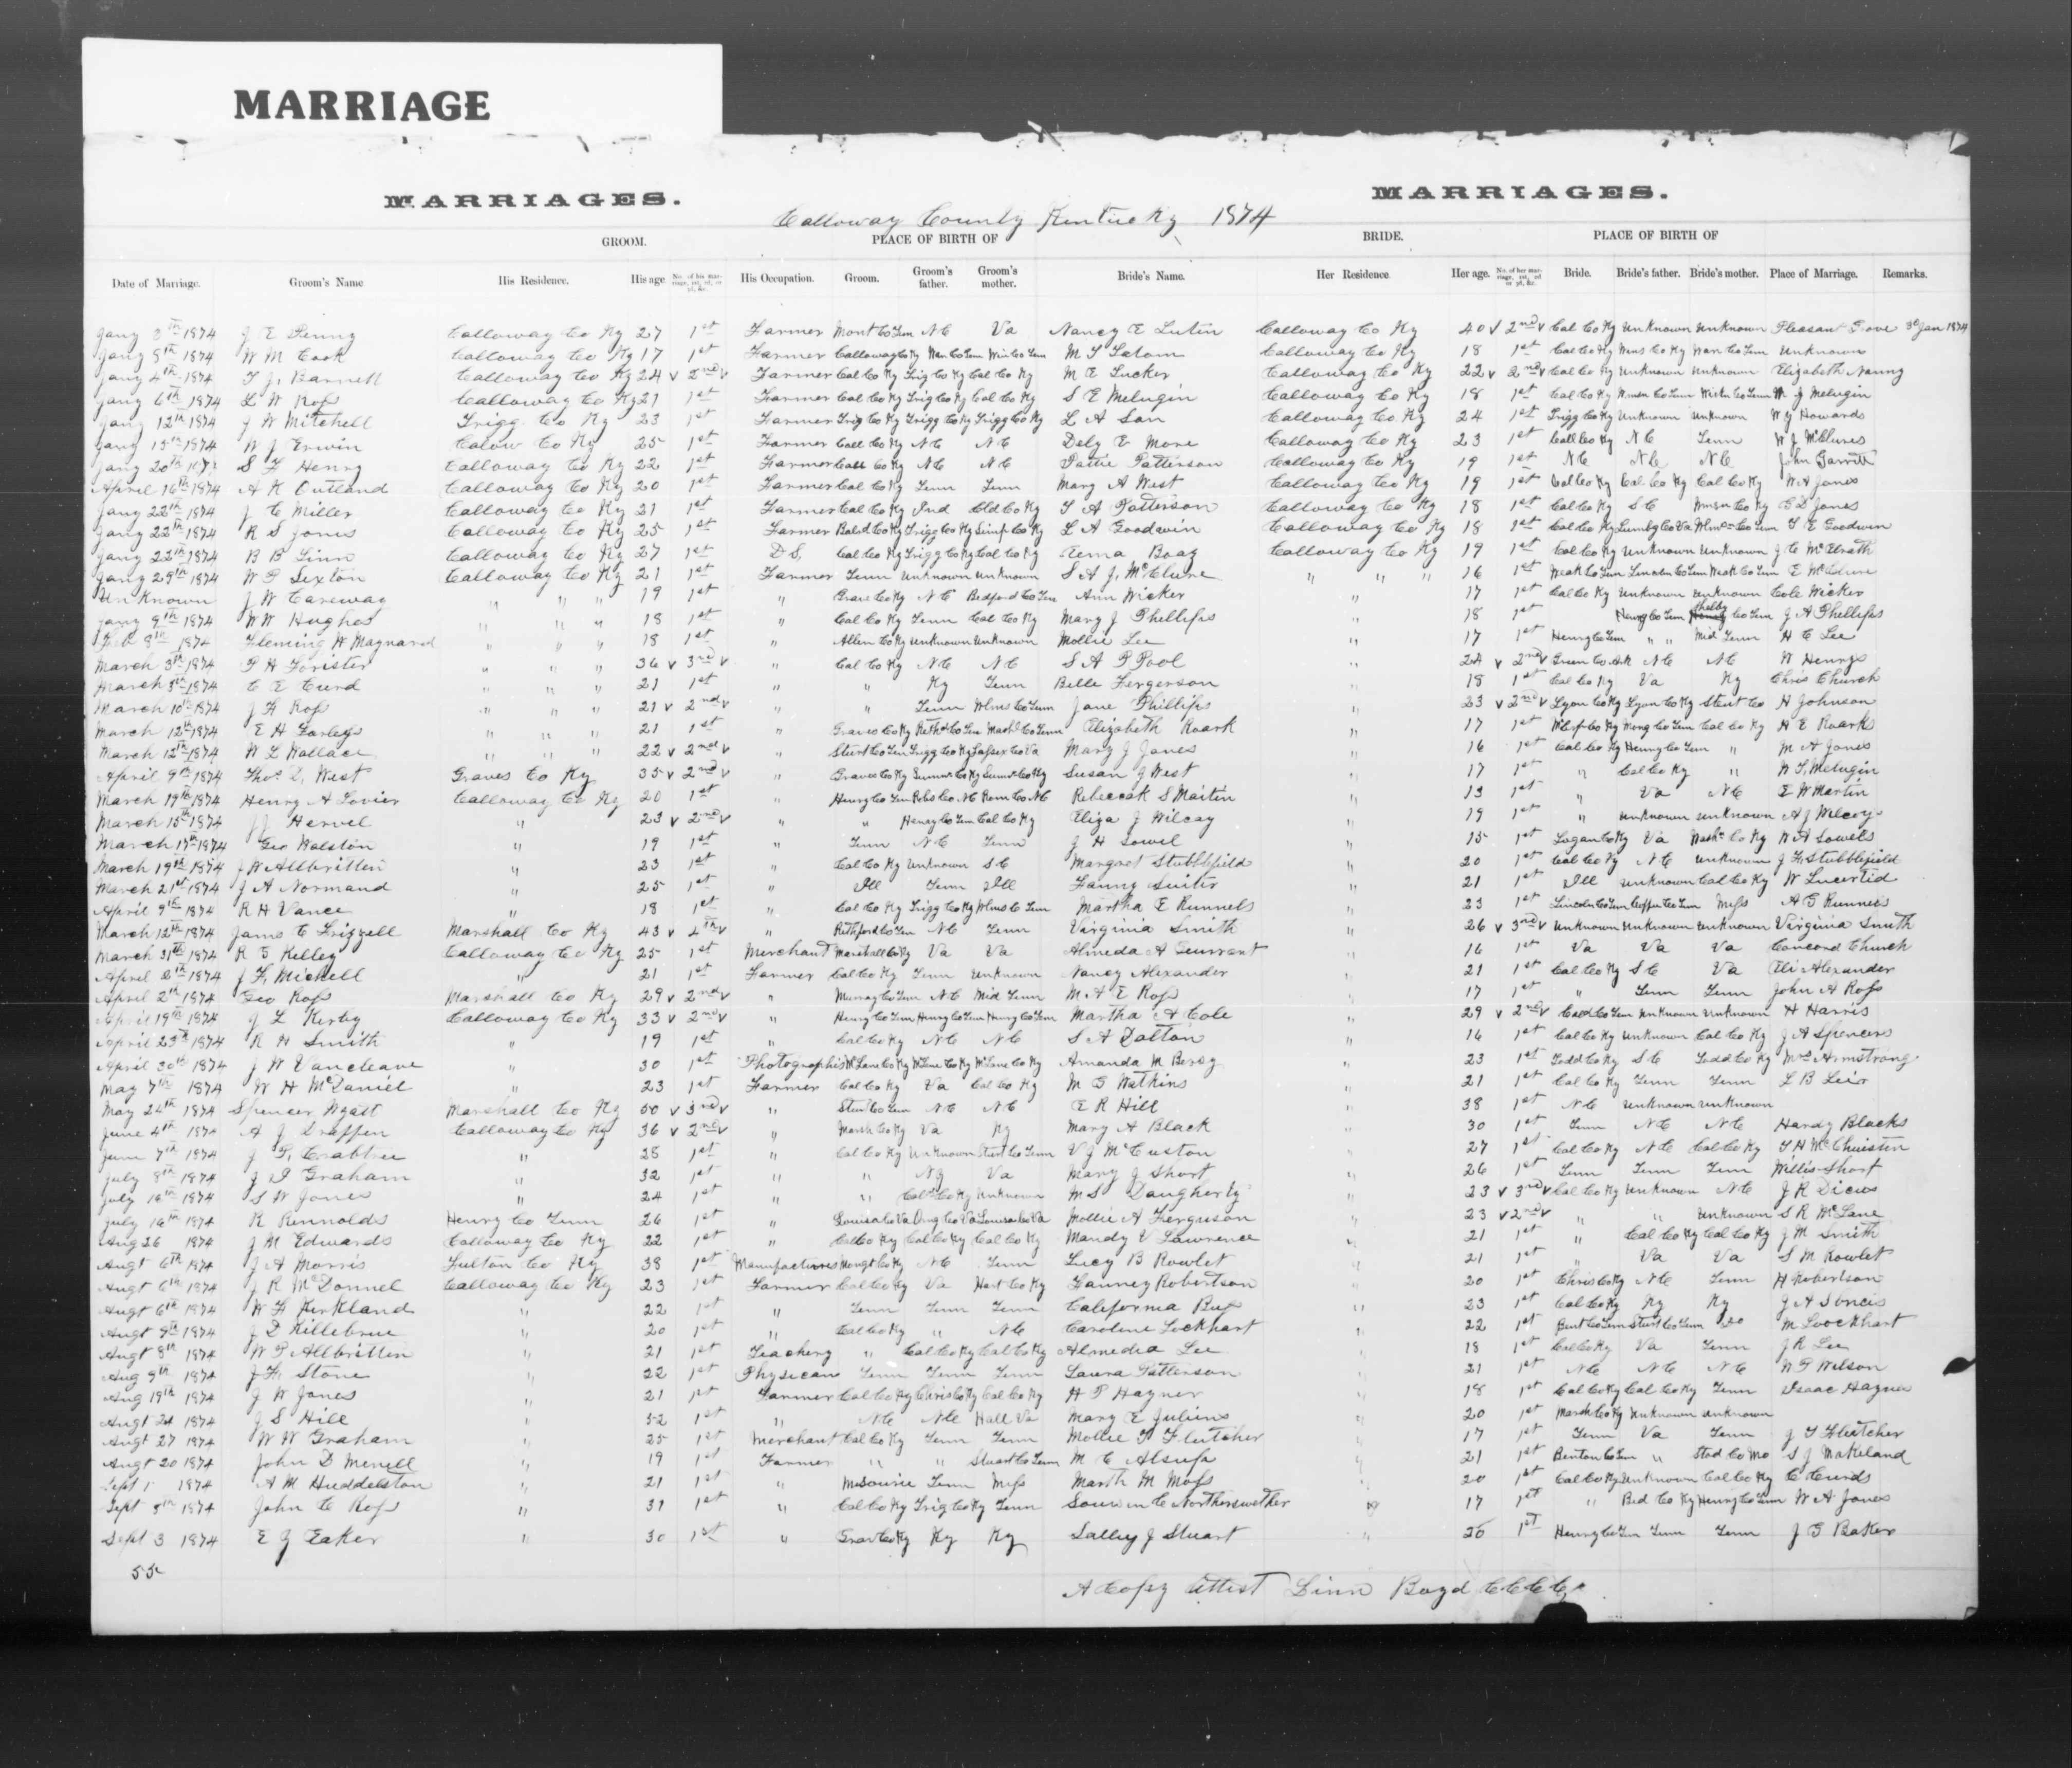 MARRIAGE
MARRIAGES. MARRIAGES.
Calloway County Kentucky 1874
GROOM. PLACE OF BIRTH OF BRIDE. PLACE OF BIRTH OF
Date of Marriage. Groom's Name His Residence. His age No. of his marriage, 1st, 2d, or 3d, &c. His Occupation. Groom. Groom's father. Groom's mother. Bride's Name. Her Residence Her age. No. of her marriage, 1st, 2d or 3d, &c. Bride. Bride's father. Bride's mother. Place of Marriage. Remarks.
Jany 8th 1874 J E Penny Calloway Co Ky 27 1st Farmer Mont Co Tenn NC Va Nancy E Calloway Co Ky 40 v 2nd v Cal Co Ky unknown unknown Pleasant Grove Jan 1874
Jany 8th 1874 W M Cook Calloway Co Ky 17 1st Farmer Calloway Co Ky M Calloway Co Ky 18 1st Cal Co Ky unknown
Jany 4th 1874 T J Barnett Calloway Co Ky 24 v 2nd v Farmer Cal Co Ky Trig Co Ky Cal Co Ky M E Tucker Calloway Co Ky 22 v 2nd v Cal Co Ky unknown unknown Elizabeth Nanny
Jany 6th 1874 L W Ross Calloway Co Ky 21 1st Farmer Cal Co Ky Trig Co Ky Cal Co Ky S E Melugin Calloway Co Ky 18 1st Cal Co Ky M J Melugin
Jany 12th 1874 J W Mitchell Trigg Co Ky 23 1st Farmer Trig Co Ky Trigg Co Ky Trigg Co Ky L A Calloway Co Ky 24 1st Trigg Co Ky unknown unknown W Howards
Jany 15th 1874 W J Erwin Calow Co Ky 25 1st Farmer Call Co Ky NC NC More Calloway Co Ky 23 1st Call Co Ky NC Tenn W J McClures
Jany 20th S F Henry Calloway Co Ky 22 1st Farmer Call Co Ky NC NC Pattie Patterson Calloway Co Ky 19 1st NC NC NC John Garrett
April 16th 1874 A K Outland Calloway Co Ky 20 1st Farmer Cal Co Ky Tenn Tenn Mary A West Calloway Co Ky 19 1st Cal Co Ky Cal Co Ky Cal Co Ky W A Jones
Jany 22th 1874 J C Miller Calloway Co Ky 21 1st Farmer Cal Co Ky Ind Cld Co Ky T A Patterson Calloway Co Ky 18 1st Cal Co Ky SC Jones
Jany 22th 1874 R S Jones Calloway Co Ky 25 1st Farmer Trigg Co Ky L A Goodwin Calloway Co Ky 18 1st Cal Co Ky Goodwin
Jany 22th 1874 B B Linn Calloway Co Ky 27 1st D S Cal Co Ky Trigg Co Ky Cal Co Ky Boaz Calloway Co Ky 19 1st Cal Co Ky unknown unknown J C McElrath
Jany 29th 1874 W P Sexton Calloway Co Ky 21 1st Farmer Tenn unknown unknown S A J McClure " " " 16 1st Weak Co Tenn Lincoln Co Tenn Weak Co Tenn E McClure
Unknown J W Careway " " " 19 1st " Grave Co Ky NC Bedford Co Tenn Ann Wicker " 17 1st Cal Co Ky unknown unknown Cole Wicker
Jany 9th 1874 W W Hughes " " " 18 1st " Cal Co Ky Tenn Cal Co Ky Mary J Phillips " 18 1st Henry Co Tenn Shelby Co Tenn J A Phillips
Feb 8th 1874 Fleming W Maynard " " " 18 1st " Allen Co Ky unknown unknown Mollie Lee " 17 1st Henry Co Tenn " " Mid Tenn H C Lee
March 3th 1874 P H Forister " " " 36 v 3rd v " Cal Co Ky NC NC S A P Pool " 24 v 2nd v Green Co Ark NC NC W Henrys
March 5th 1874 C E Curd " " " 21 1st " " Ky Tenn Belle Fergerson " 18 1st Cal Co Ky Va Ky Chris Church
March 10th 1874 J F Ross " " " 21 v 2nd v " " Tenn Wlms Co Tenn Jane Phillips " 23 v 2nd v Lyon Co Ky Lyon Co Ky Stewt Co H Johnson
March 12th 1874 E H Farleys " " " 21 1st " Graves Co Ky Elizabeth Roark " 17 1st Henry Co Tenn Cal Co Ky H E Roarks
March 12th 1874 W L Wallace " " " 22 v 2nd v " Stwrt Co Tenn Trigg Co Ky Sussex Co Va Mary J Jones " 16 1st Cal Co Ky Henry Co Tenn " M A Jones
April 9th 1874 Thos D. West Graves Co Ky 35 v 2nd v " Graves Co Ky Susan J West " 17 1st " Cal Co Ky " W T Melugin
March 19th 1874 Henry A Lovier Calloway Co Ky 20 1st " Henry Co Tenn Robs Co NC Rown Co NC Rebeccah S Martin " 13 1st " Va NC E W Martin
March 15th 1874 J J Hervel " 23 v 2nd v " " Henry Co Tenn Cal Co Ky Eliza J Wilcoy " 19 1st " unknown unknown A J Wilcoys
March 17th 1874 Geo Walston " 19 1st " Tenn NC Tenn J H Sowel " 15 1st Logan Co Ky Va Wash Co Ky W A Sowels
March 19th 1874 J W Allbritten " 23 1st " Cal Co Ky unknown SC Margret Stubblefield " 20 1st Cal Co Ky NC unknown J F Stubblefield
March 21st 1874 J A Normand " 25 1st " Ill Tenn Ill Fanny Suiter " 21 1st Ill unknown Cal Co Ky W
April 9th 1874 R H Vance " 18 1st " Cal Co Ky Trigg Co Ky Wlms Co Tenn Martha E Runnels " 23 1st Lincoln Co Tenn Coffee Co Tenn Miss A G Runnels
March 12th 1874 Jams C Frizzell Marshall Co Ky 43 v 4th v " Ruthford Co Ten NC Tenn Virginia Smith " 26 v 3rd v unknown unknown unknown Virginia Smith
March 31th 1874 R G Kelley Calloway Co Ky 25 1st Merchant Marshall Co Ky Va Va Almeda A " 16 1st Va Va Va Concord Church
April 2th 1874 J F Michell " 21 1st Farmer Cal Co Ky Tenn unknown Nancy Alexander " 21 1st Cal Co Ky SC Va Eli Alexander
April 2th 1874 Geo Ross Marshall Co Ky 29 v 2nd v " Murray Co Tenn NC Mid Tenn M A E Ross " 17 1st " Tenn Tenn John A Ross
April 19th 1874 J L Kirby Calloway Co Ky 33 v 2nd v " Henry Co Tenn Henry Co Tenn Henry Co Tenn Martha A Cole " 29 v 2nd v unknown unknown H Harris
April 23th 1874 R H Smith " 19 1st " Cal Co Ky NC NC S A Dalton " 16 1st Cal Co Ky unknown Cal Co Ky J A Spencers
April 30th 1874 J W Vancleave " 30 1st Photographis McLane Co Ky McLane Co Ky McLane Co Ky Amanda M " 23 1st Todd Co Ky SC Todd Co Ky Mrs Armstrong
May 7th 1874 W H McDaniel " 23 1st Farmer Cal Co Ky Va Cal Co Ky M G Watkins " 21 1st Cal Co Ky Tenn Tenn L B
May 24th 1874 Spencer Wyatt Marshall Co Ky 50 v 3rd v " Stew Co Tenn NC NC E R Hill " 38 1st NC unknown unknown
June 4th 1874 A J Draffen Calloway Co Ky 36 v 2nd v " Marsh Co Ky Va Ky Mary A Black " 30 1st Tenn NC NC Hardy Blacks
June 7th 1874 J T Crabtree " 25 1st " Cal Co Ky unknown Stewt Co Tenn V J McCuston " 27 1st Cal Co Ky NC Cal Co Ky T H McChuiston
July 8th 1874 J D Graham " 32 1st " " Va Mary J Short " 26 1st Tenn Tenn Tenn Willis Short
July 16th 1874 S W Jones " 24 1st " " unknown M S Daugherty " 23 v 3rd v Cal Co Ky unknown NC J R
July 16th 1874 R Rennolds Henry Co Tenn 26 1st " Louisa Co Va Orng Co Va Louisa Co Va Mollie A Ferguson " 23 v 2nd v " " unknown S R McLane
Aug 26 1874 J M Edwards Calloway Co Ky 22 1st " Cal Co Ky Cal Co Ky Cal Co Ky Mandy V Lawrence " 21 1st " Cal Co Ky Cal Co Ky J M Smith
Augt 6th 1874 J A Morris Fulton Co Ky 38 1st Manufactures NC Tenn Lucy B Rowlet " 21 1st " Va Va S M Rowlet
Augt 6th 1874 J R McDonnel Calloway Co Ky 23 1st Farmer Cal Co Ky Va Hart Co Ky Fanney Robertson " 20 1st Chris Co Ky NC Tenn H Robertson
Augt 6th 1874 W H Kirkland " 22 1st " Tenn Tenn Tenn California " 23 1st Cal Co Ky Ky Ky J A
Augt 9th 1874 J D Killebrew " 20 1st " Cal Co Ky " NC Caroline Lockhart " 22 1st Bent Co Tenn Stwrt Co Tenn Do M Loockhart
Augt 8th 1874 W P Allbritten " 21 1st Teaching " Cal Co Ky Cal Co Ky Almedia Lee " 18 1st Cal Co Ky Va Tenn J R Lee
Aug 9th 1874 J H Stone " 22 1st Physican Tenn Tenn Tenn Laura Patterson " 21 1st NC NC NC W P Wilson
Aug 19th 1874 J W Jones " 21 1st Farmer Cal Co Ky Chris Co Ky Cal Co Ky H P Hagner " 18 1st Cal Co Ky Cal Co Ky Tenn Isaac Hagner
Augt 24 1874 J S Hill " 52 1st " NC NC Hall Va Mary E Julians " 20 1st Marsh Co Ky unknown unknown
Augt 27 1874 W W Graham " 25 1st Merchant Cal Co Ky Tenn Tenn Mollie P Fletcher " 17 1st Tenn Va Tenn J T Fletcher
Augt 20 1874 John D " 19 1st Farmer " " Stuart Co Tenn M C Alsup " 21 1st Benton Co Tenn " Stod Co Mo S J Makeland
Sept 1 1874 A M Huddelston " 21 1st " Missourie Tenn Miss Marth M Moss " 20 1st Cal Co Ky unknown Cal Co Ky C Curds
Sept 3th 1874 John C Ross " 31 1st " Cal Co Ky Trig Co Ky Tenn C " 17 1st " Bed Co Ky Henry Co Tenn W A Jones
Sept 3 1874 E Z Eaker " 30 1st " Grav Co Ky Ky Ky Salley J Stuart " 20 1st Henry Co Ten Tenn Tenn J G Baker
55
A Copy Attest Linn Boyd